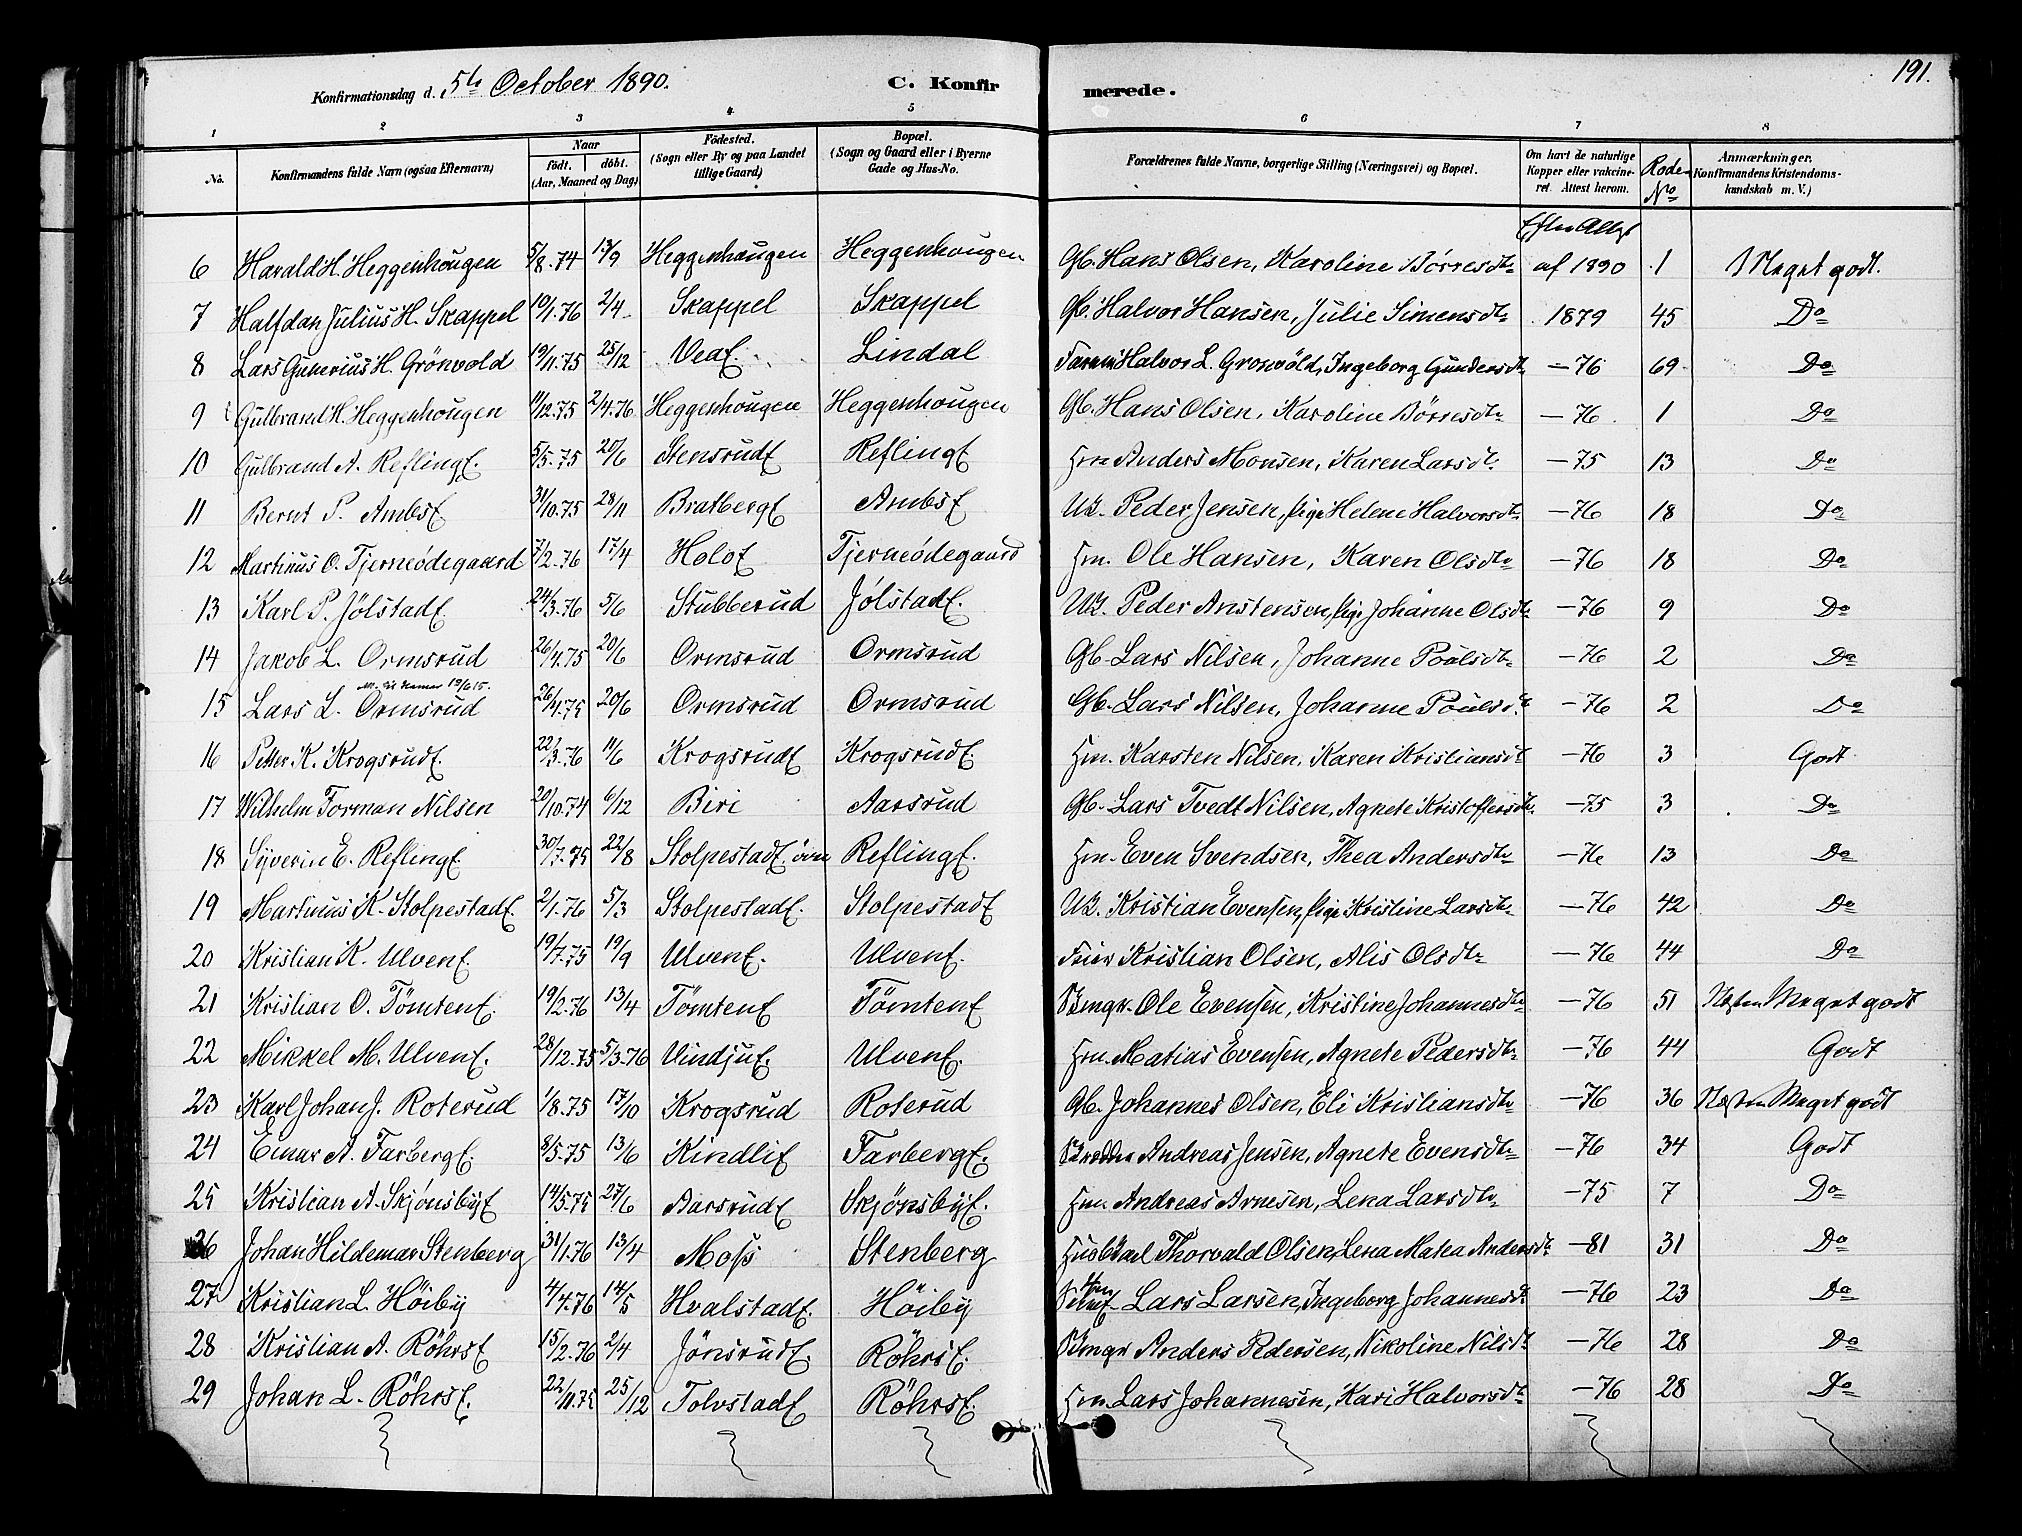 191.
Konfirmationsdag d. 5te October 1890. C. Konfirmerede.
1 2 3 4 5 6 7 8
No. Konfirmandens fulde Navn (ogsaa Efternavn) Naar födt. döbt. (Aar, Maaned og Dag) Födested. (Sogn eller By og paa Landet tillige Gaard) Bopæl. (Sogn og Gaard eller i Byerne Gade og Hus-No. Forældrenes fulde Navne, borgerlige Stilling (Næringsvei) og Bopæl. Om havt de naturlige Kopper eller vakcineret. Attest herom. Rode No Anmærkninger. Konfirmandens Kristendomskundskab m. V.)
Efter Attest
6 Harald H. Heggenhougen 5/8.74 13/9 Heggenhaugen Heggenhougen Gb. Hans Olsen, Karoline Børresdtr af 1890 1 Meget godt.
7 Halfdan Julius H. Skappel 19/1.76 2/4 Skappel Skappel Gb. Halvor Hansen, Julie Simensdtr 1879 45 Do
8 Lars Gunerius H. Grönvold 19/11.75 25/12 Vea E. Lindal Halvor L. Gronvöld, Ingeborg Gundersdtr -76 69 Do
9 Gulbrand H. Heggenhougen 11/12.75 2/4.76 Heggenhougen Heggenhougen Gb. Hans Olsen, Karoline Børresdtr -76 1 Do
10 Gulbrand A. Refling E. 5/5.75 20/6 Stensrud E Refling E Hm Anders Monsen, Karen Larsdtr -75 13 Do
11 Bernt P. Ambs E 31/10.75 28/11 Bratberg E Ambs E UK. Peder Jensen, Pige Helene Halvorsdtr -76 18 Do
12 Martinus O. Tjerneödegaard 7/2.76 17/4 Holo E Tjerneödegaard Hm. Ole Hansen, Karen Olsdtr -76 18 Do
13 Karl P. Jölstad E 24/3.76 5/6 Stubberud Jölstad E. UK. Peder Anstensen, Pige Johanne Olsdtr -76 9 Do
14 Jakob L. Ormsrud 26/4.75 20/6 Ormsrud Ormsrud Gb. Lars Nilsen, Johanne Poulsdtr -76 2 Do
til Hamar 19/6 15.
15 Lars L. Ormsrud 26/4.75 20/6 Ormsrud Ormsrud Gb. Lars Nilsen, Johanne Poulsdtr -76 2 Do
16 Petter K. Krogsrud E. 22/3.76 11/6 Krogsrud E Krogsrud E. Hm. Karsten Nilsen, Karen Kristiansdtr -76 3 Godt
17 Wilhelm Forman Nilsen 20/10.74 6/12 Biri Aarsrud Gb. Lars Tvedt Nilsen, Agnete Kristoffersdtr. -75 3 Do
18 Syverin E. Refling E. 30/7.75 22/8 Stolpestad E. övre Refling E. Hm. Even Svendsen, Thea Andersdtr -76 13 Do
19 Martinus K. Stolpestad E. 2/1.76 5/3 Stolpestad E. Stolpestad E UK. Kristian Evensen, Pige Kristine Larsdtr -76 42 Do
20 Kristian K. Ulven E. 19/7.75 19/9 Ulven E. Ulven E. Feier Kristian Olsen, Alis Olsdtr -76 44 Do
21 Kristian O. Tömten E. 19/2.76 13/4 Tömten E Tömten E Bmgr. Ole Evensen, Kristine Johannesdtr -76 51 Næsten Meget godt
22 Mikkel M. Ulven E. 28/12.75 5/3.76 Vindju E. Ulven E. Hm. Matias Evensen, Agnete Pedersdtr -76 44 Godt
23 Karl Johan J. Roterud 1/8.75 17/10 Krogsrud Roterud Gb. Johannes Olsen, Eli Kristiansdtr -76 36 Næsten Meget godt
24 Einar A. Farberg E. 8/5.75 13/6 Kindli E Farberg E. Andreas Jensen, Agnete Evensdtr -76 34 Godt
25 Kristian A. Skjönsby E 14/5.75 27/6 Aarsrud E Skjönsby E. Hm. Andreas Arnesen, Lena Larsdtr -75 7 Do
26 Johan Hildemar Stenberg 31/1.76 13/4 Moss Stenberg Thorvald Olsen, Lena Matea Andersdtr -81 31 Do
27 Kristian L. Höiby 4/4.76 14/5 Hvalstad E. Höiby Lars Larsen, Ingeborg Johannesdtr -76 23 Do
28 Kristian A. Röhrs E 15/2.76 2/4 Jönsrud E. Röhrs E. Bmgr Anders Pedersen, Nikoline Nilsdtr -76 28 Do
29 Johan L. Röhrs E. 22/11.75 25/12 Tolvstad E Röhrs E. Hm. Lars Johannesen, Kari Halvorsdtr -76 28 Do